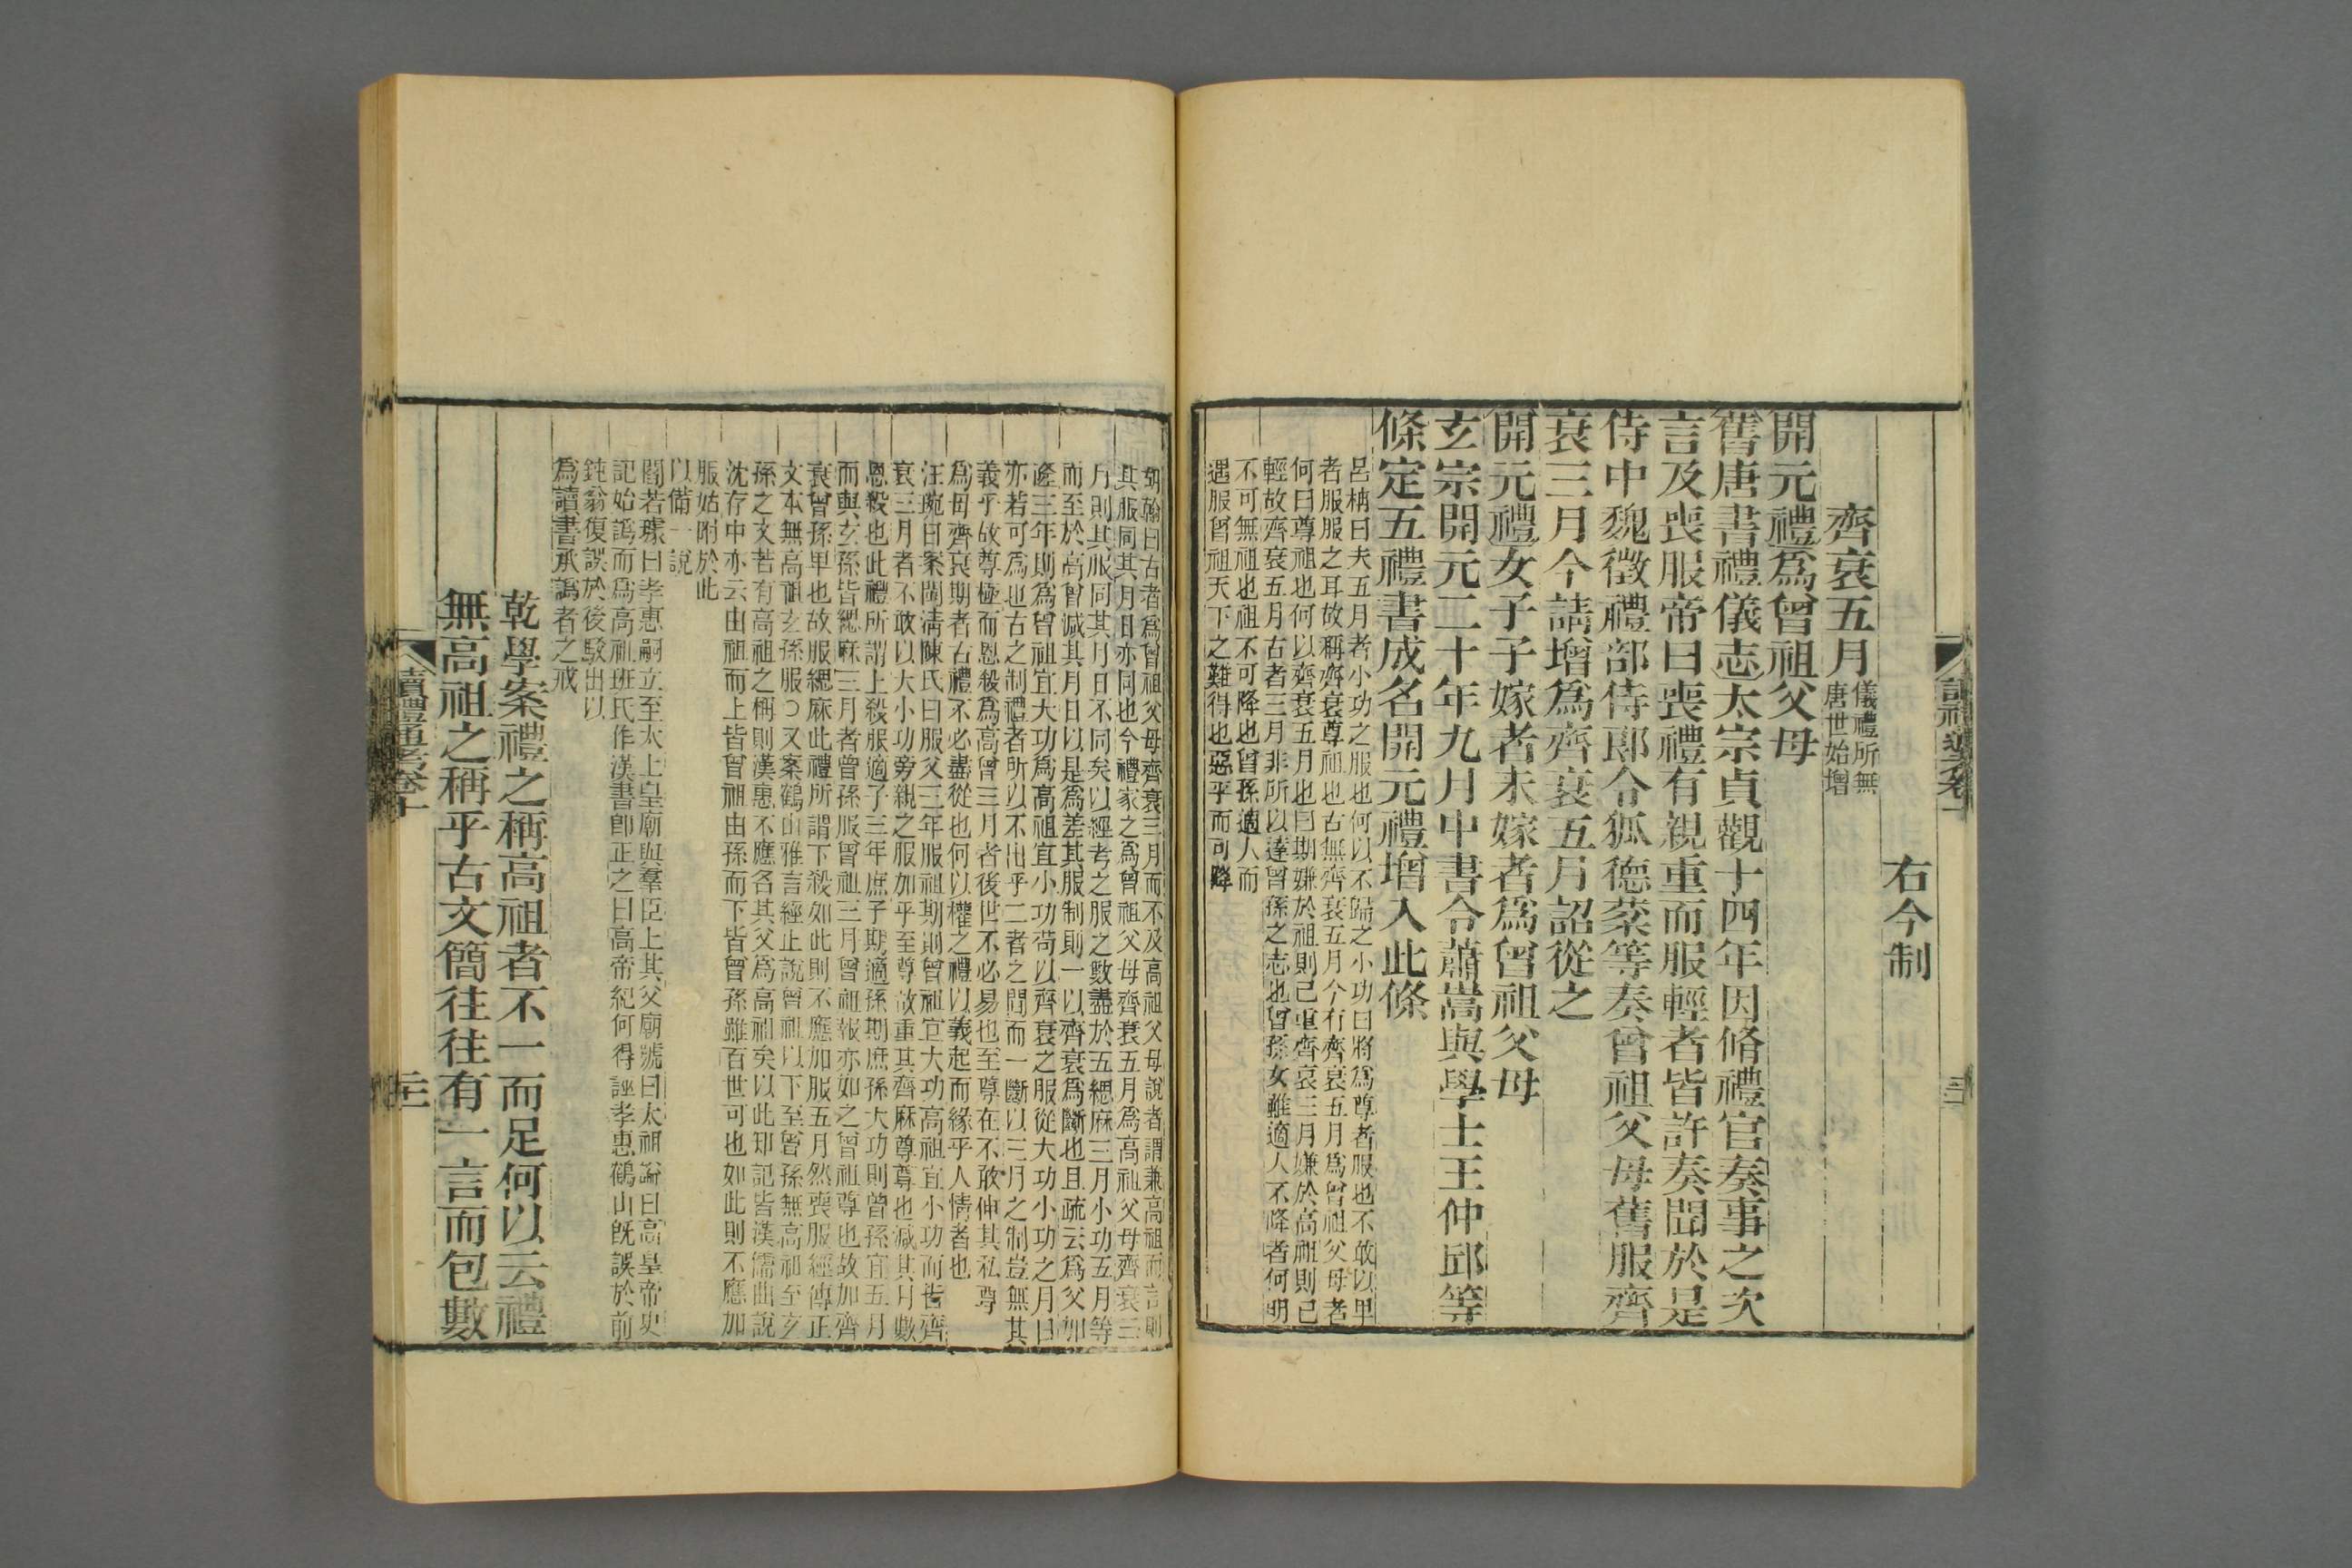 右今制
齊衰五月儀禮所無唐世始增
開元禮爲曾祖父母
舊唐書禮儀志太宗貞觀十四年因脩禮官奏事之次
言及喪服帝曰喪禮有親重而服輕者皆許奏聞於是
侍中魏徵禮部侍郎令狐德棻等奏曾祖父母舊服齊
衰三月今請增爲齊衰五月詔從之
開元禮女子子嫁者未嫁者爲曾祖父母
玄宗開元二十年九月中書令蕭嵩與學士王仲邱等
條定五禮書成名開元禮增入此條
呂柟曰夫五月者小功之服也何以不歸之小功曰將爲尊者服也不敢以卑
者服服之耳故稱齊衰尊祖也古無齊衰五月今有齊衰五月爲曾祖父母者
何曰尊祖也何以齊衰五月也曰期嫌於祖則已重齊衰三月嫌於高祖則已
輕故齊衰五月古者三月非所以達曾孫之志也曾孫女雖適人不降者何明
不可無祖也祖不可降也曾孫適人而
遇服曾祖天下之難得也惡乎而可降
胡翰曰古者爲曾祖父母齊衰三月而不及高祖父母說者謂兼高祖而言則
其服同其月日亦同也今禮家之爲曾祖父母齊衰五月爲高祖父母齊衰三
月則其服同其月日不同矣以經考之服之數盡於五緦麻三月小功五月等
而至於高曾減其月日以是爲差其服制則一以齊衰爲斷也且疏云爲父加
隆三年則爲曾祖宜大功爲高祖宜小功苟以齊衰之服從大功小功之月日
亦若可爲也古之制禮者所以不出乎二者之間而一斷以三月之制豈無其
義乎故尊極而恩殺爲高曾三月者後世不必易也至尊在不敢伸其私尊
爲母齊衰期者古禮不必盡從也何以權之禮以義起而緣乎人情者也
汪琬曰案閩清陳氏曰服父三年服祖期則曾祖宜大功高祖宜小功而皆齊
衰三月者不敢以大小功旁親之服加乎至尊故重其齊麻尊尊也減其月數
恩殺也此禮所謂上殺服適子三年庶子期適孫期庶孫大功則曾孫宜五月
而與玄孫皆緦麻三月者曾孫服曾祖三月曾祖報亦如之曾祖尊也故加齊
衰曾孫卑也故服緦麻此禮所謂下殺如此則不應加服五月然喪服經傳正
文本無高祖玄孫服○又案鶴山雅言經止說曾祖以下至曾孫無高祖至玄
孫之文若有高祖之稱則漢惠不應名其父爲高祖矣以此知記皆漢儒曲說
沈存中亦云由祖而上皆曾祖由孫而下皆曾孫雖百世可也如此則不應加
服姑附於此
以備一說
閻若璩曰孝惠嗣立至太上皇廟與羣臣上其父廟號曰太祖諡曰高皇帝史
記始譌而爲高祖班氏作漢書卽正之曰高帝紀何得誣孝惠鶴山旣誤於前
鈍翁復誤於後駁出以
爲讀書承譌者之戒
乾學案禮之稱高祖者不一而足何以云禮
無高祖之稱乎古文簡往往有一言而包數
讀禮通考卷十